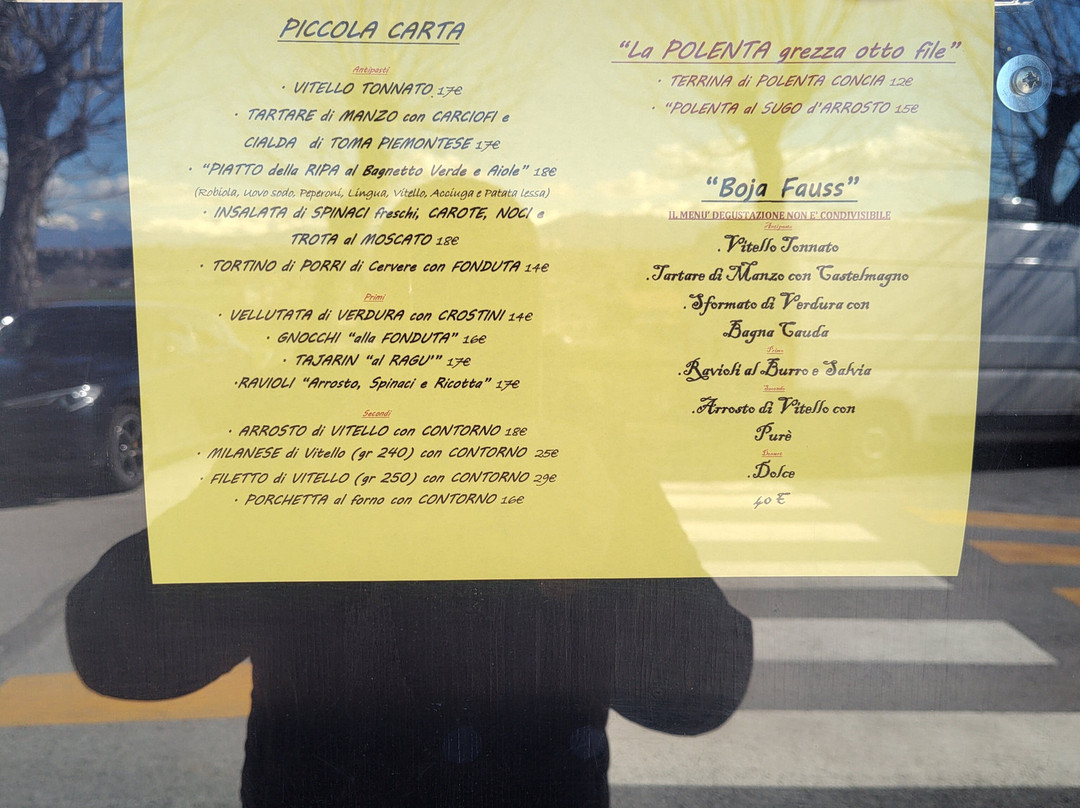 PICCOLA CARTA
Antipasti
· VITELLO TONNATO 17€
· TARTARE di MANZO con CARCIOFI e
CIALDA di TOMA PIEMONTESE 17€
· "PIATTO della RIPA al Bagnetto Verde e Aiole" 18€
(Robiola, Uovo sodo, Peperoni, Lingua, Vitello, Acciuga e Patata lessa)
· INSALATA di SPINACI freschi, CAROTE, NOCI e
TROTA al MOSCATO 18€
· TORTINO di PORRI di Cervere con FONDUTA 14€
Primi
· VELLUTATA di VERDURA con CROSTINI 14€
· GNOCCHI "alla FONDUTA" 16€
· TAJARIN "al RAGU'" 17€
·RAVIOLI "Arrosto, Spinaci e Ricotta" 17€
Secondi
· ARROSTO di VITELLO con CONTORNO 18€
· MILANESE di Vitello (gr 240) con CONTORNO 25€
· FILETTO di VITELLO (gr 250) con CONTORNO 29€
· PORCHETTA al forno con CONTORNO 16€
"La POLENTA grezza otto file"
· TERRINA di POLENTA CONCIA 12€
· "POLENTA al SUGO d'ARROSTO 15€
"Boja Fauss"
IL MENU' DEGUSTAZIONE NON E' CONDIVISIBILE
Antipasti
.Vitello Tonnato
.Tartare di Manzo con Castelmagno
.Sformato di Verdura con
Bagna Cauda
.Ravioli al Burro e Salvia
.Arrosto di Vitello con
Purè
.Dolce
40 €